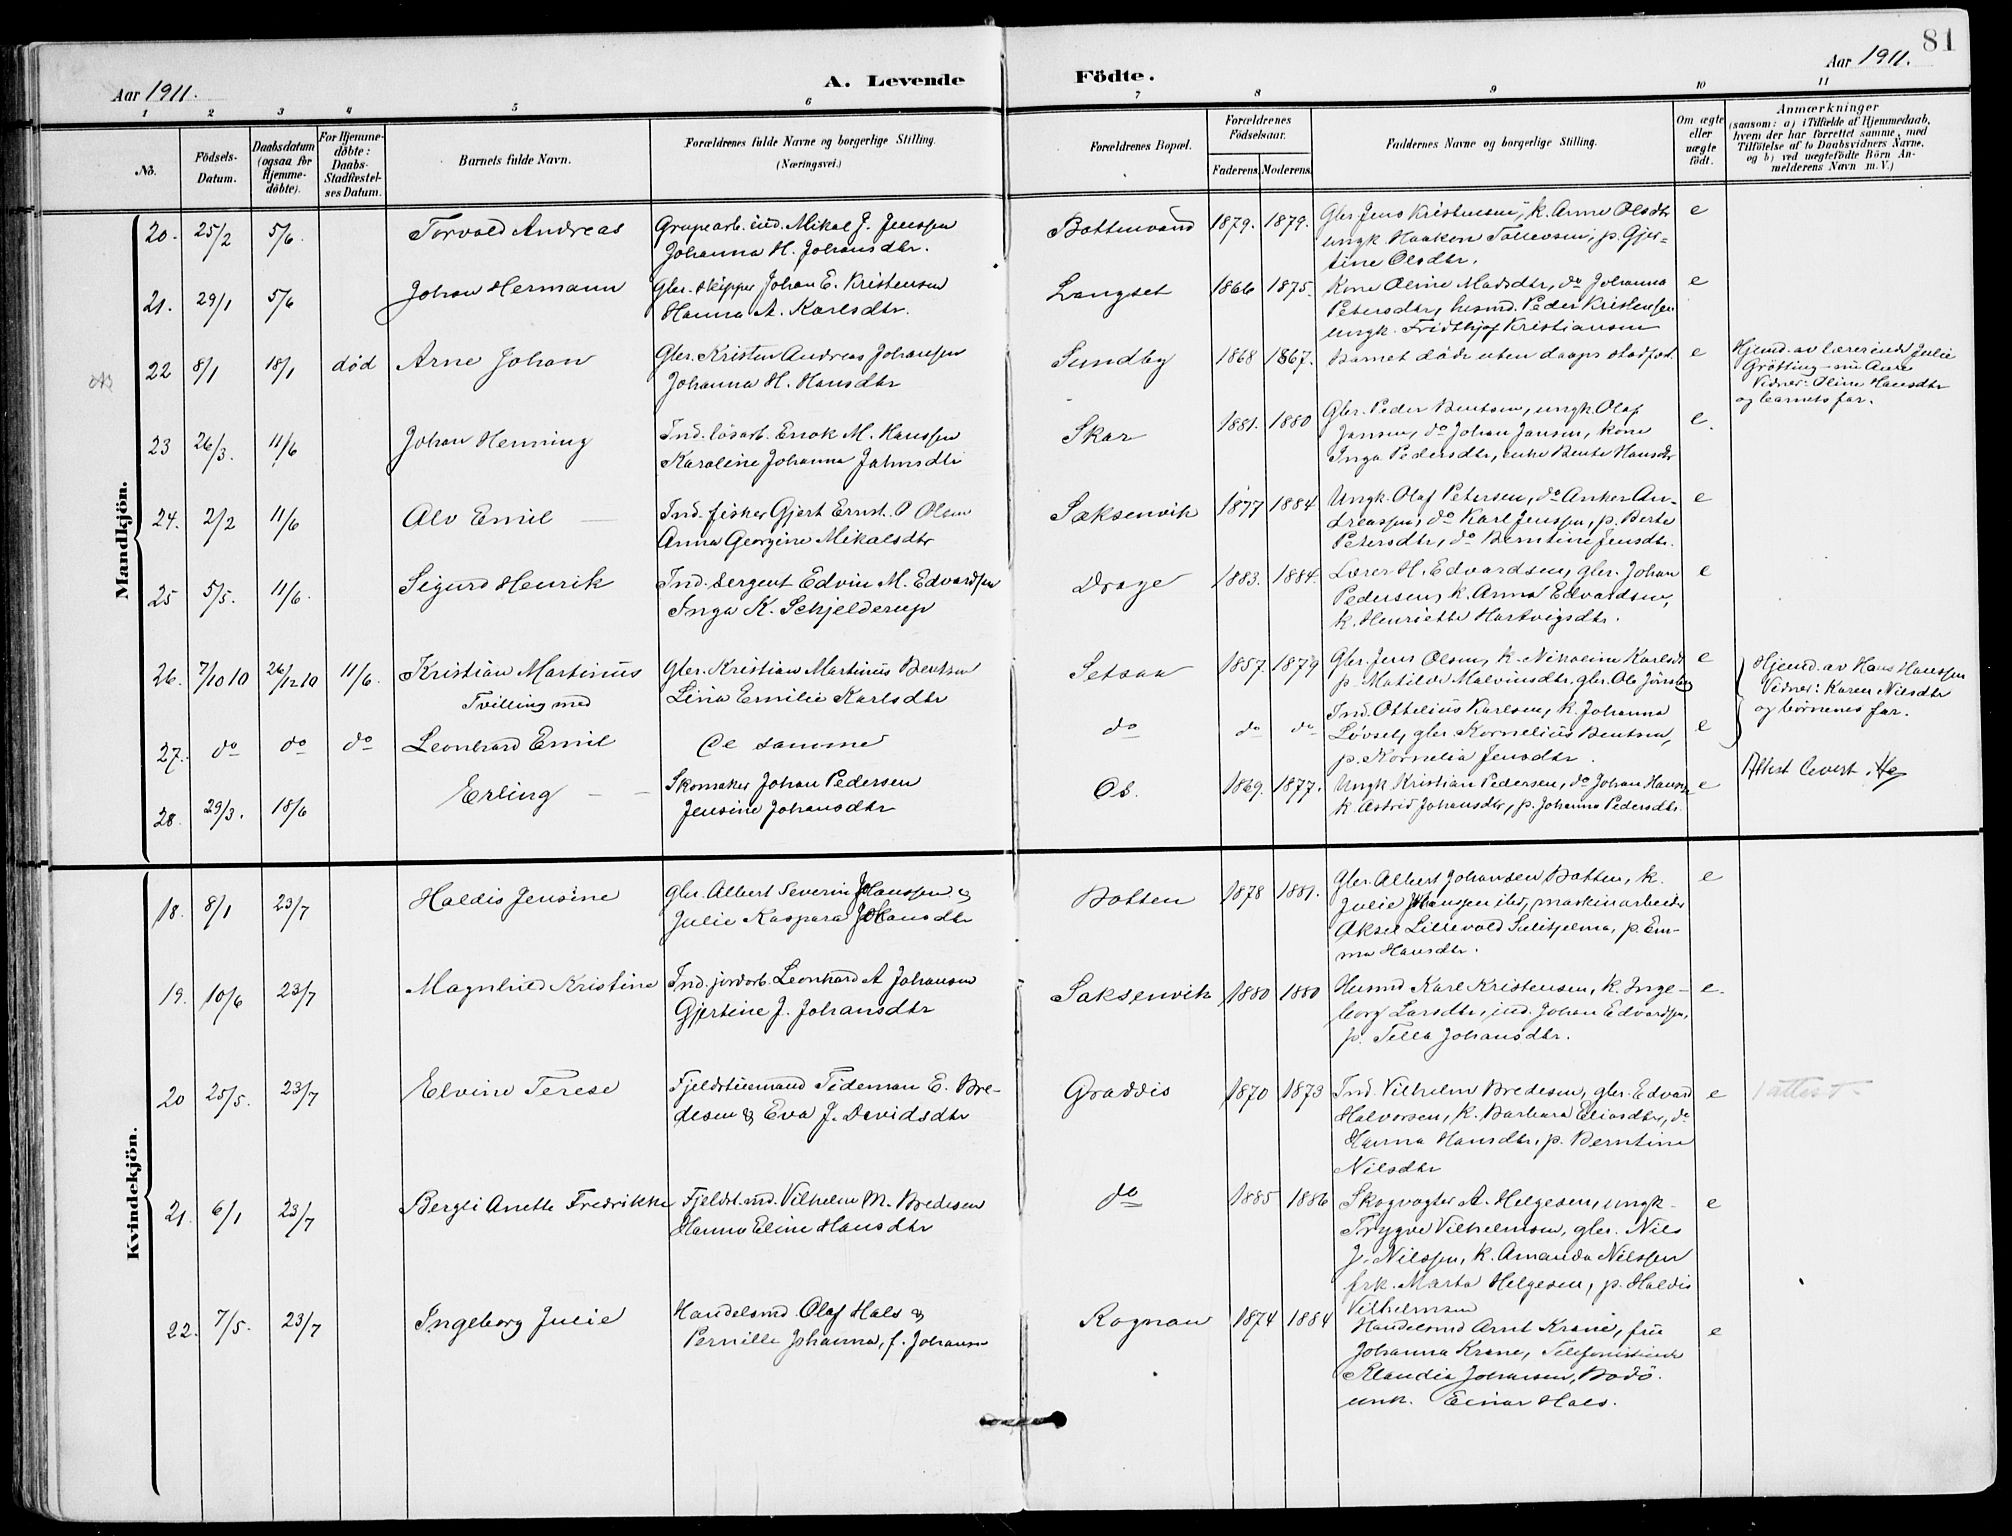 81
Aar 1911.
A. Levende Födte.
Aar 1911.
1 2 3 4 5 6 7 8 9 10 11
No.
Födsels-Datum.
Daabsdatum (ogsaa for Hjemme-döbte).
For Hjemme-döbte: Daabs-Stadfæstel-ses Datum.
Barnets fulde Navn.
Forældrenes fulde Navne og borgerlige Stilling.
(Næringsvei.)
Forældrenes Bopæl.
Forældrenes Födselsaar.
Faderens. Moderens.
Faddernes Navne og borgerlige Stilling.
Om ægte eller uægte födt.
Anmærkninger
(saasom: a) i Tilfælde af Hjemmedaab,
hvem der har forrettet samme, med
Tilföielse af to Daabsvidners Navne,
og b) ved uægtefödte Börn An-
melderens Navn m. V.)
Mandkjön.
20. 25/2 5/6. Torvald Andreas
Grubearb. ind. Mikal J. Jenssen
Johanna H. Johansdtr.
Bottenvand 1879. 1879.
Gbr. Jens Kristensen, k. Anne Olsdtr
ungk. Haakon Tollevsen, p. Gjer-
tine Olsdtr.
e
21. 29/1 5/6 Johan Hermann
Gbr. skipper Johan E. Kristensen
Hanna A. Karlsdtr.
Langset 1866 1875.
Kone Oline Madsdtr, do Johanna
Petersdtr, husmd. Peder Kristensen
ungk. Fridthjof Kristiansen
e
22 8/1 18/1 död Arne Johan
Gbr. Kristen Andreas Johansen
Johanna H. Hansdtr
Sundby 1868 1867.
Barnet döde uten daaps stadfæst.
e
Hjemd. av lærerinde Julie
Grötting - nu Aure
Vidner: Oline Hansdtr
og barnets far.
23 26/3. 11/6 Johan Henning
Ind. lösarb. Enok M. Hanssen
Karoline Johanna Jahnsdtr
Skar 1881. 1880
Gbr. Peder Bentsen, ungk. Olaf
Jansen, do Johan Jansen, kone
Inga Pedersdtr, enke Bente Hansdtr
e.
24. 2/2 11/6 Alv Emil
Ind. fisker Gjert Ernst O Olsen
Anna Georgine Mikalsdtr
Saksenvik 1877 1884
Ungk. Olaf Petersen, do Anker An-
dreassen, do Karl Jenssen, p. Berte
Petersdtr, do Berntine Jensdtr.
e
25 5/5. 11/6. Sigurd Henrik
Ind. sergent Edvin M. Edvardsen
Inga K. Schjelderup
Drage 1883. 1884.
Lærer H. Edvardsen, gbr. Johan
Pedersen, k. Anna Edvardsen,
k. Henriette Hartvigsdtr.
e
26. 7/10 10 26/12 10 11/6. Kristian Martinus
Tvilling med
Gbr. Kristian Martinus Bentsen
Lina Emilie Karlsdtr
Setsaa 1857. 1879
Gbr. Jens Olsen, k. Nikoline Karlsdt
p. Matilde Malvinsdtr, gbr. Ole Jönsberg
e
Hjemd. av Hans Hanssen
Vidner: Karen Nilsdtr
og börnenes far.
27. do do do Leonhard Emil
De samme
do do do
Ind. Ottelius Karlsen, k. Johanna
Lövset, gbr. Kornelius Bentsen,
p. Kornelia Jensdtr.
e
28. 29/3. 18/6 Erling
Skomaker Johan Pedersen
Jensine Johansdtr
Os. 1869. 1877.
Ungk. Kristian Pedersen, do Johan Hansen
k. Astrid Johansdtr, p. Johanna Pedersdtr.
e
Attest levert.
Kvindekjön.
18. 8/1 23/7 Haldis Jensine
Gbr. Albert Severin Johanssen &
Julie Kaspara Johansdtr
Botten 1878 1881.
Gbr. Albert Johansen Botten, k.
Julie Johanssen ibd, maskinarbeider
Aksel Lillevold Sulitjelma, p. Em-
ma Hansdtr.
e
19. 10/6 23/7 Magnhild Kristine
Ind. jordarb. Leonhard A Johansen
Gjertine J. Johansdtr
Saksenvik 1880 1880
Husmd Karl Kristensen, k. Inge-
borg Larsdtr, ind. Johan Edvardsen,
p. Tella Johansdtr.
e.
20 25/5. 23/7 Elvine Terese
Fjeldstuemand Tideman E. Bre-
desen & Eva J. Davidsdtr
Graddis 1870 1873
Ind. Vilhelm Bredesen, gbr. Edvard
Halvorsen, k. Barbara Eliasdtr, do
Hanna Hansdtr, p. Berntine
Nilsdtr
e
1 attest
21. 6/1 23/7 Bergli Anette Fredrikke
Fjeldst.md. Vilhelm M. Bredesen
Hanna Eline Hansdtr
do 1885 1886
Skogvogter A. Helgesen, ungk.
Trygve Vilhelmsen, gbr. Nils
J. Nilssen, k. Amanda Nilssen
frk. Marta Helgesen, p. Haldis
Vilhelmsen
e
22. 7/5. 23/7 Ingeborg Julie
Handelsmd. Olaf Hals &
Pernille Johanna, f. Johansen
Rognan 1874 1884
Handelsmd Arnt Krane, fru
Johanna Krane, Telefonistinde
Klaudia Johansen, Bodö.
unk. Einar Hals.
e